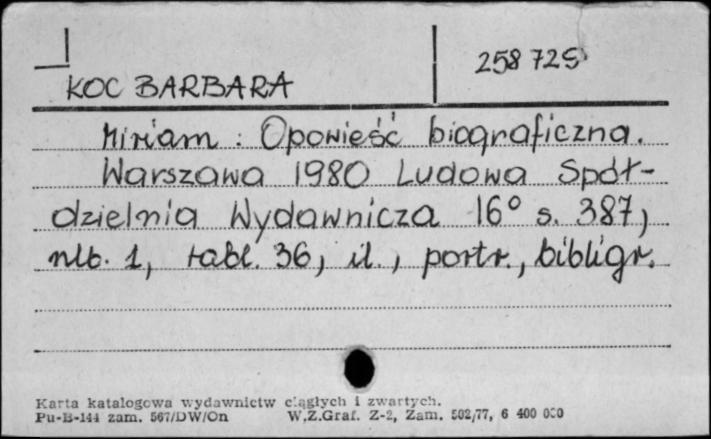 258 725
KOC BARBARA
Miriam : Opowieść biograficzna.
Warszawa 1980 Ludowa Spół-
dzielnia Wydawnicza 16° s. 387,
nlb. 1, tabl. 36, il., portr., bibligr.
Karta katalogowa wydawnictw ciągłych i zwartych.
Pu-B-144 zam. 567/DW/On W.Z.Graf. Z-2, Zam. 502/77, 6 400 000